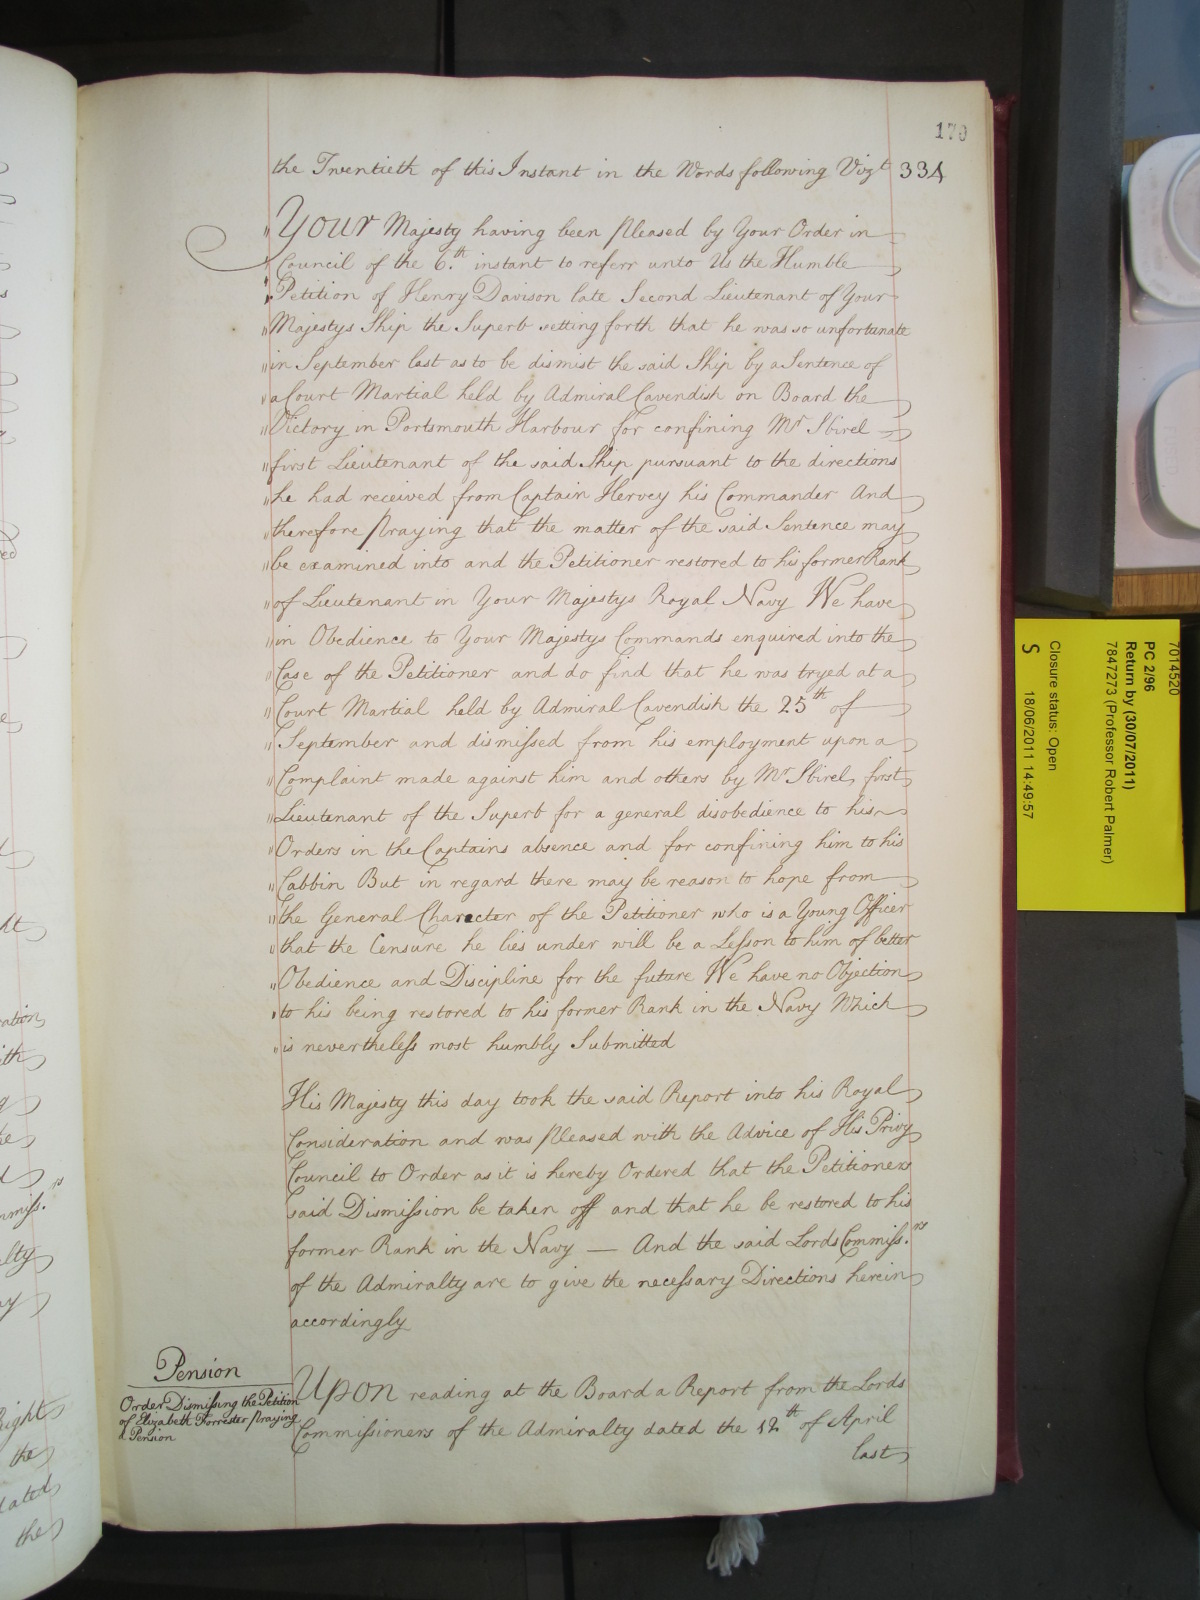 179
the Twentieth of this Instant in the Words following Vizt 334
"Your Majesty having been pleased by Your Order in
"Council of the 6.th instant to referr unto Us the Humble
"Petition of Henry Davison late Second Lieutenant of Your
"Majestys Ship the Superb setting forth that he was so unfortunate
"in September last as to be dismist the said Ship by a Sentence of
"a Court Martial held by Admiral Cavendish on Board the
"Victory in Portsmouth Harbour for confining Mr Sbirel
"first Lieutenant of the said Ship pursuant to the directions
"he had received from Captain Hervey his Commander And
"therefore praying that the matter of the said Sentence may
"be examined into and the Petitioner restored to his former Rank
"of Lieutenant in Your Majestys Royal Navy We have
"in Obedience to Your Majestys Commands enquired into the
"Case of the Petitioner and do find that he was tryed at a
"Court Martial held by Admiral Cavendish the 25th of
"September and dismissed from his employment upon a
"Complaint made against him and others by Mr Sbirel, first
"Lieutenant of the Superb for a general disobedience to his
"Orders in the Captains absence and for confining him to his
"Cabbin But in regard there may be reason to hope from
"the General Character of the Petitioner who is a Young Officer
"that the Censure he lies under will be a Lesson to him of better
"Obedience and Discipline for the future We have no Objection
"to his being restored to his former Rank in the Navy Which
"is nevertheless most humbly Submitted
His Majesty this day took the said Report into his Royal
Consideration and was pleased with the Advice of His Privy
Council to Order as it is hereby Ordered that the Petitioners
said Dismission be taken off and that he be restored to his
former Rank in the Navy — And the said Lords Commiss.rs
of the Admiralty are to give the necessary Directions herein
accordingly
Pension
Order Dismissing the Petition
of Elizabeth Forrester praying
a Pension
Upon reading at the Board a Report from the Lords
Commissioners of the Admiralty dated the 12th of April
last
7014520
PC 2/96
Return by (30/07/2011)
7847273 (Professor Robert Palmer)
Closure status: Open
S 18/06/2011 14:49:57